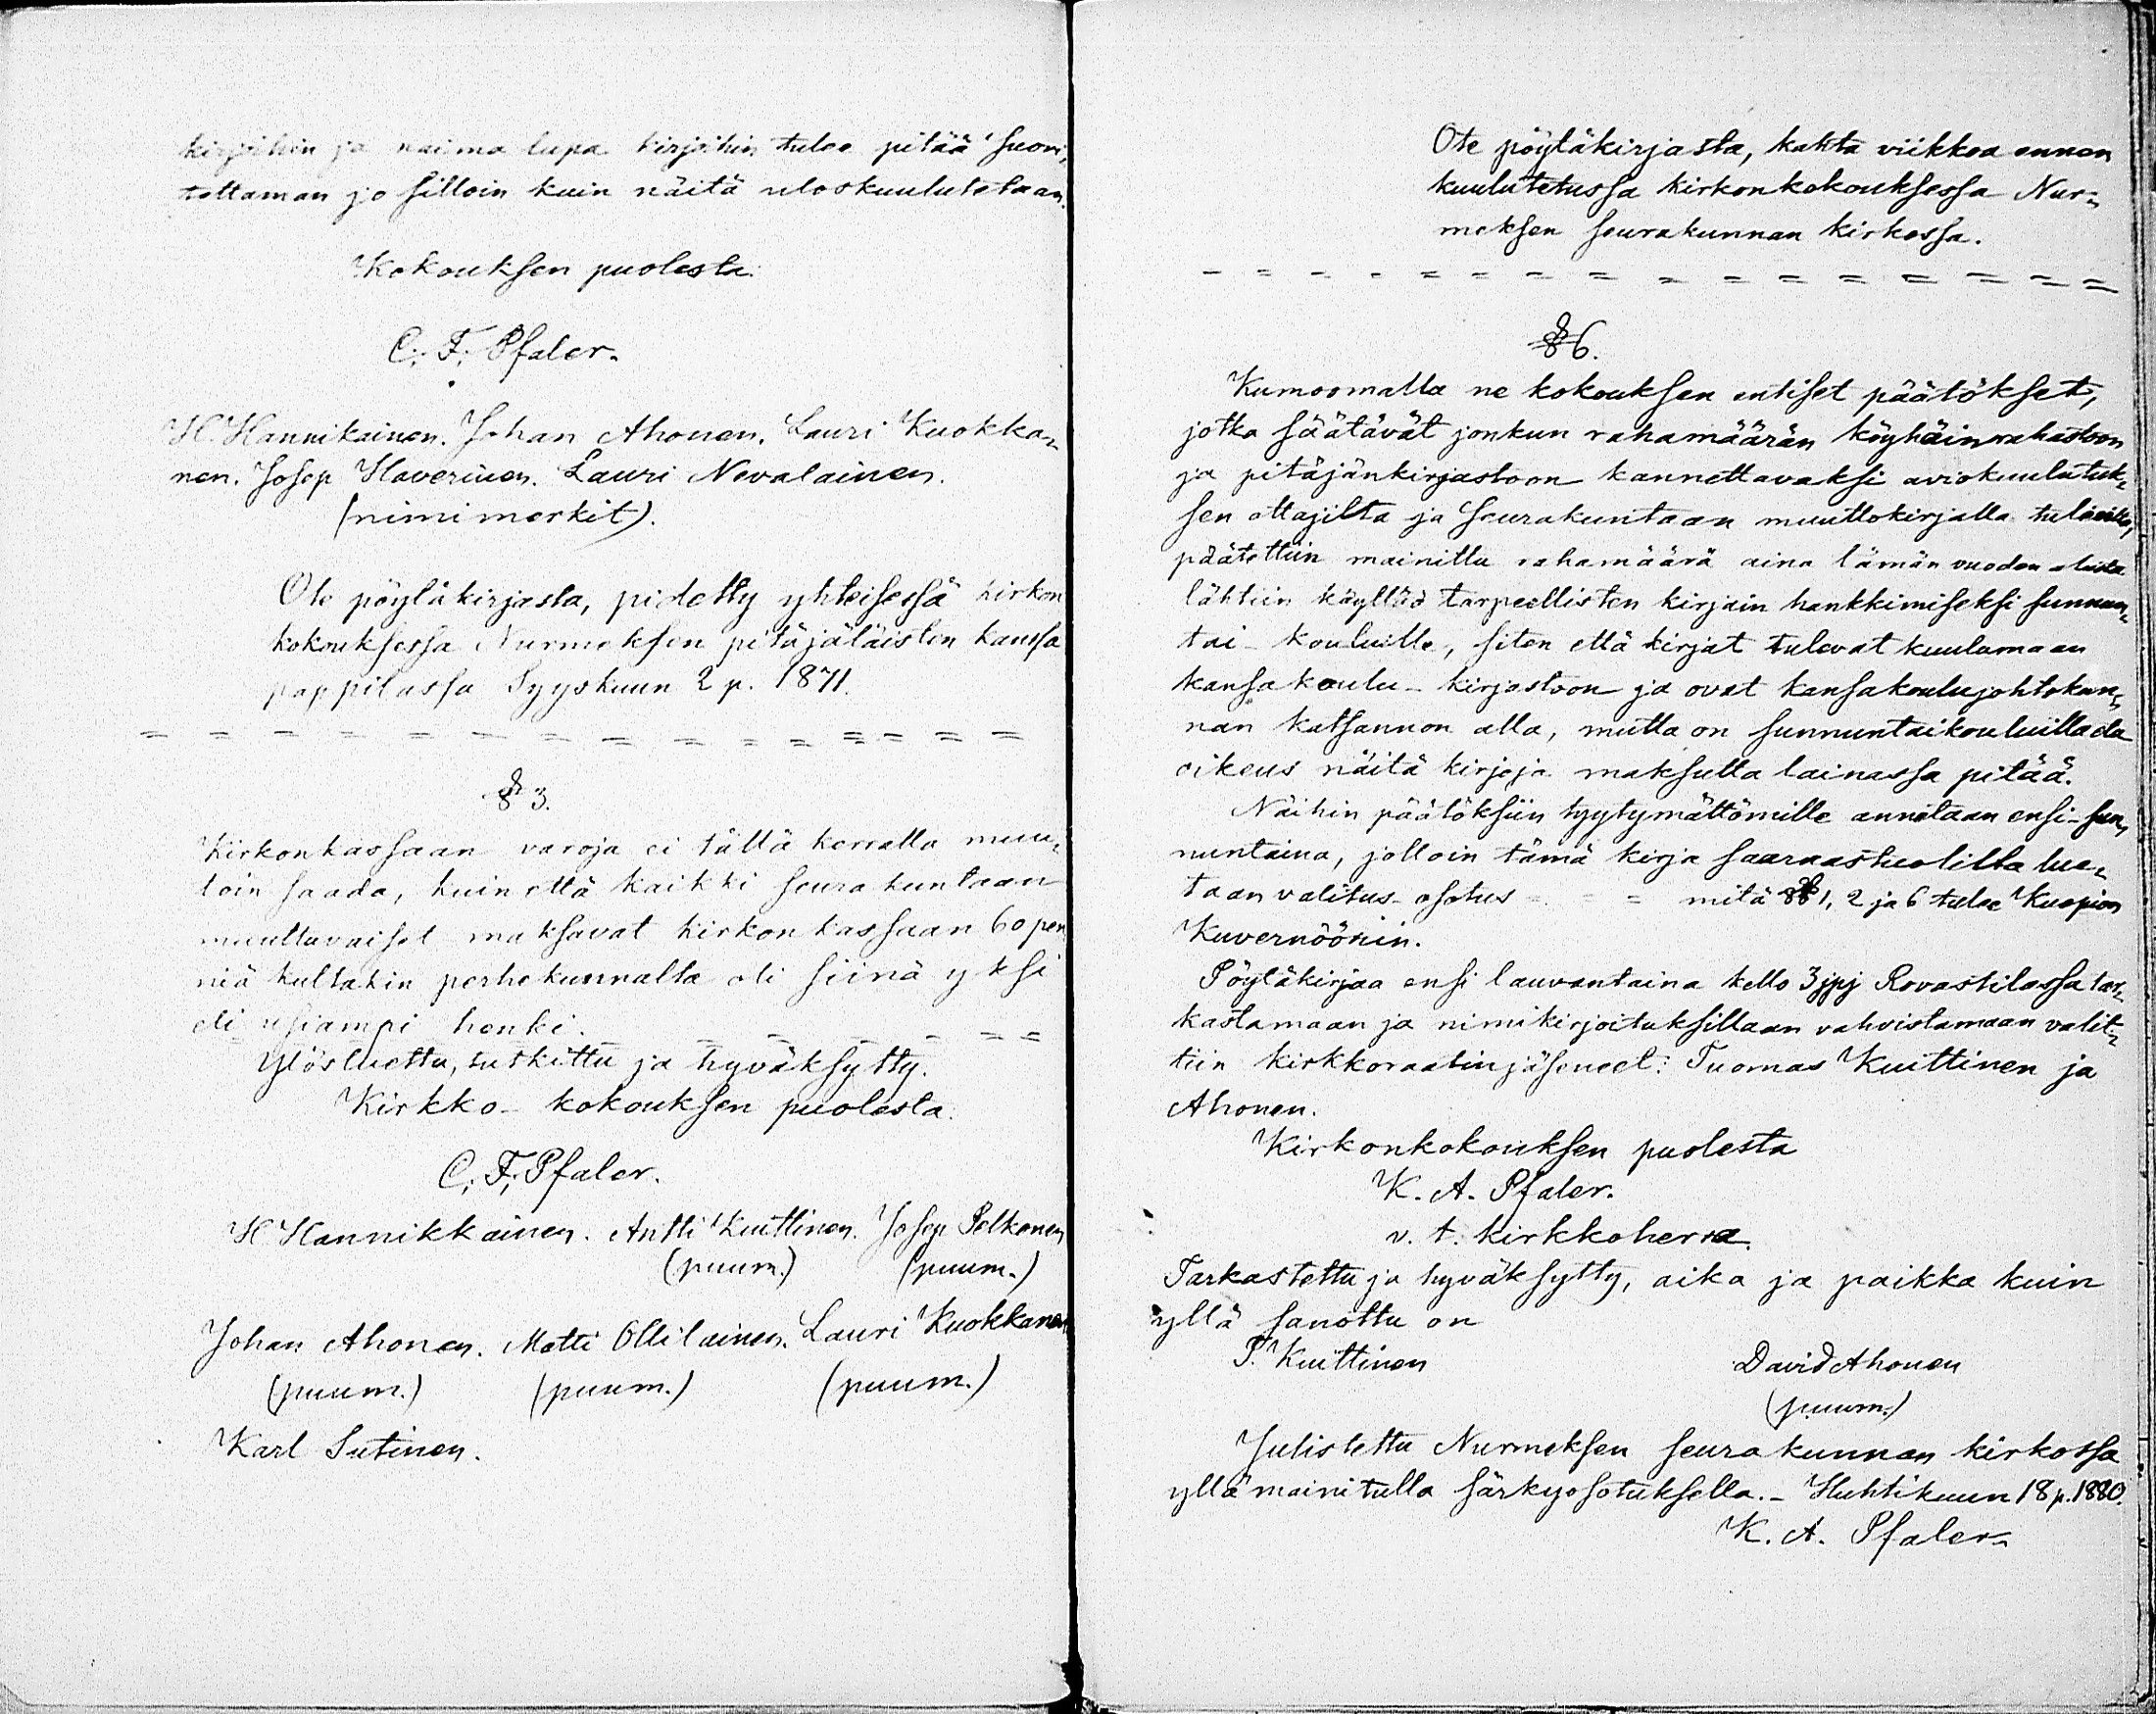 kirjoihin ja naima lupa kirjoihin tulee pitää suori,
tettaman jo silloin kuin näitä uloskuulutetaan.
Kokouksen puolesta:
C. F. Pfaler.
H. Hannikainen. Johan Ahonen. Lauri Kuokka=
nen. Josep Haverinen. Lauri Nevalainen.
(nimimerkit).
Ote pöytäkirjasta, pidetty yhteisessä kirkon
kokouksessa Nurmeksen pitäjäläisten kanssa
pappilassa Syyskuun 2 p. 1871.
= = = = = = = = = = = = = = =
§ 3.
Kirkonkassaan varoja ei tällä kerralla muu=
toin saada, kuin että kaikki seurakuntaan
muuttavaiset maksavat kirkon kassaan 60 pen
niä kultakin perhekunnalta oli siinä yksi
eli usiampi henki. = = = = = =
Ylösluettu, tutkittu ja hyväksytty.
Kirkko-kokouksen puolesta:
C. F. Pfaler.
H Hannikkainen. Antti Kuittinen. Josep Pelkonen
(puum.) (puum.)
Johan Ahonen. Matti Ollilainen. Lauri Kuokkanen
(puum.) (puum.) (puum.)
Karl Sutinen.
Ote pöytäkirjasta, kahta viikkoa ennen
kuulutetussa kirkonkokouksessa Nur=
meksen seurakunnan kirkossa.
= = = = = = = = = = = = = = = =
§ 6.
Kumoomalla ne kokouksen entiset päätökset,
jotka säätävät jonkun rahamäärän köyhäinrahastoon
ja pitäjänkirjastoon kannettavaksi aviokuulutuk=
sen ottajilta ja seurakuntaan muuttokirjalla
päätettiin mainittu rahamäärä aina tämän vuoden alusta
lähtiin käyttää tarpeellisten kirjain hankkimiseksi sunnun=
tai-kouluille, siten että kirjat tulevat kuulumaan
kansakoulu-kirjastoon ja ovat kansakoulujohtokun=
nan katsannon alla, mutta on sunnuntaikouluilla
oikeus näitä kirjoja maksutta lainassa pitää.
Näihin päätöksiin tyytymättömille annetaan ensi-sun=
nuntaina, jolloin tämä kirja saarnastuolilta lue=
taan valitus-osotus = = = mitä §§ 1, 2 ja 6 tulee Kuopion
Kuvernööriin.
Pöytäkirjaa ensi lauvantaina kello 3 jpj Rovastilassa tar=
kastamaan ja nimikirjoituksillaan vahvistamaan valit=
tiin kirkkoraatinjäsenet: Tuomas Kuittinen ja
Ahonen.
Kirkonkokouksen puolesta
K. A. Pfaler.
v. t. kirkkoherra.
Tarkastettu ja hyväksytty, aika ja paikka kuin
yllä sanottu on
T. Kuittinen David Ahonen
(puum.)
Julistettu Nurmeksen seurakunnan kirkossa
yllämainitulla särkyosotuksella. - Huhtikuun 18 p. 1880.
K. A. Pfaler.